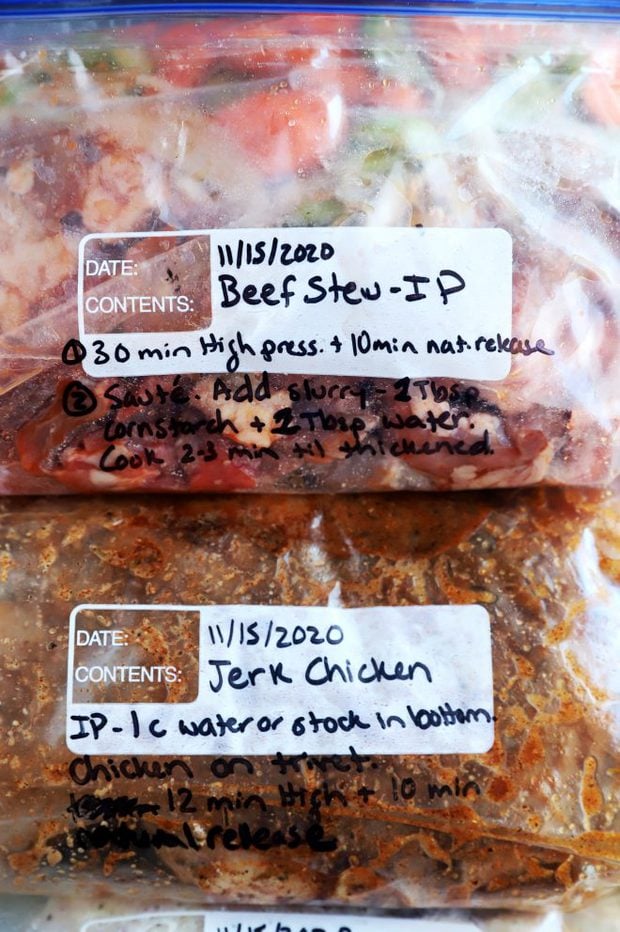 DATE: 11/15/2020
CONTENTS: Beef Stew - IP
① 30 min High press. + 10min nat. release
② Sauté. Add slurry - 2 Tbsp
cornstarch + 2 Tbsp water.
Cook 2-3 min til thickened.
DATE: 11/15/2020
CONTENTS: Jerk Chicken
IP - 1c water or stock in bottom.
Chicken on trivet.
12 min High + 10 min
natural release
11/15/2020